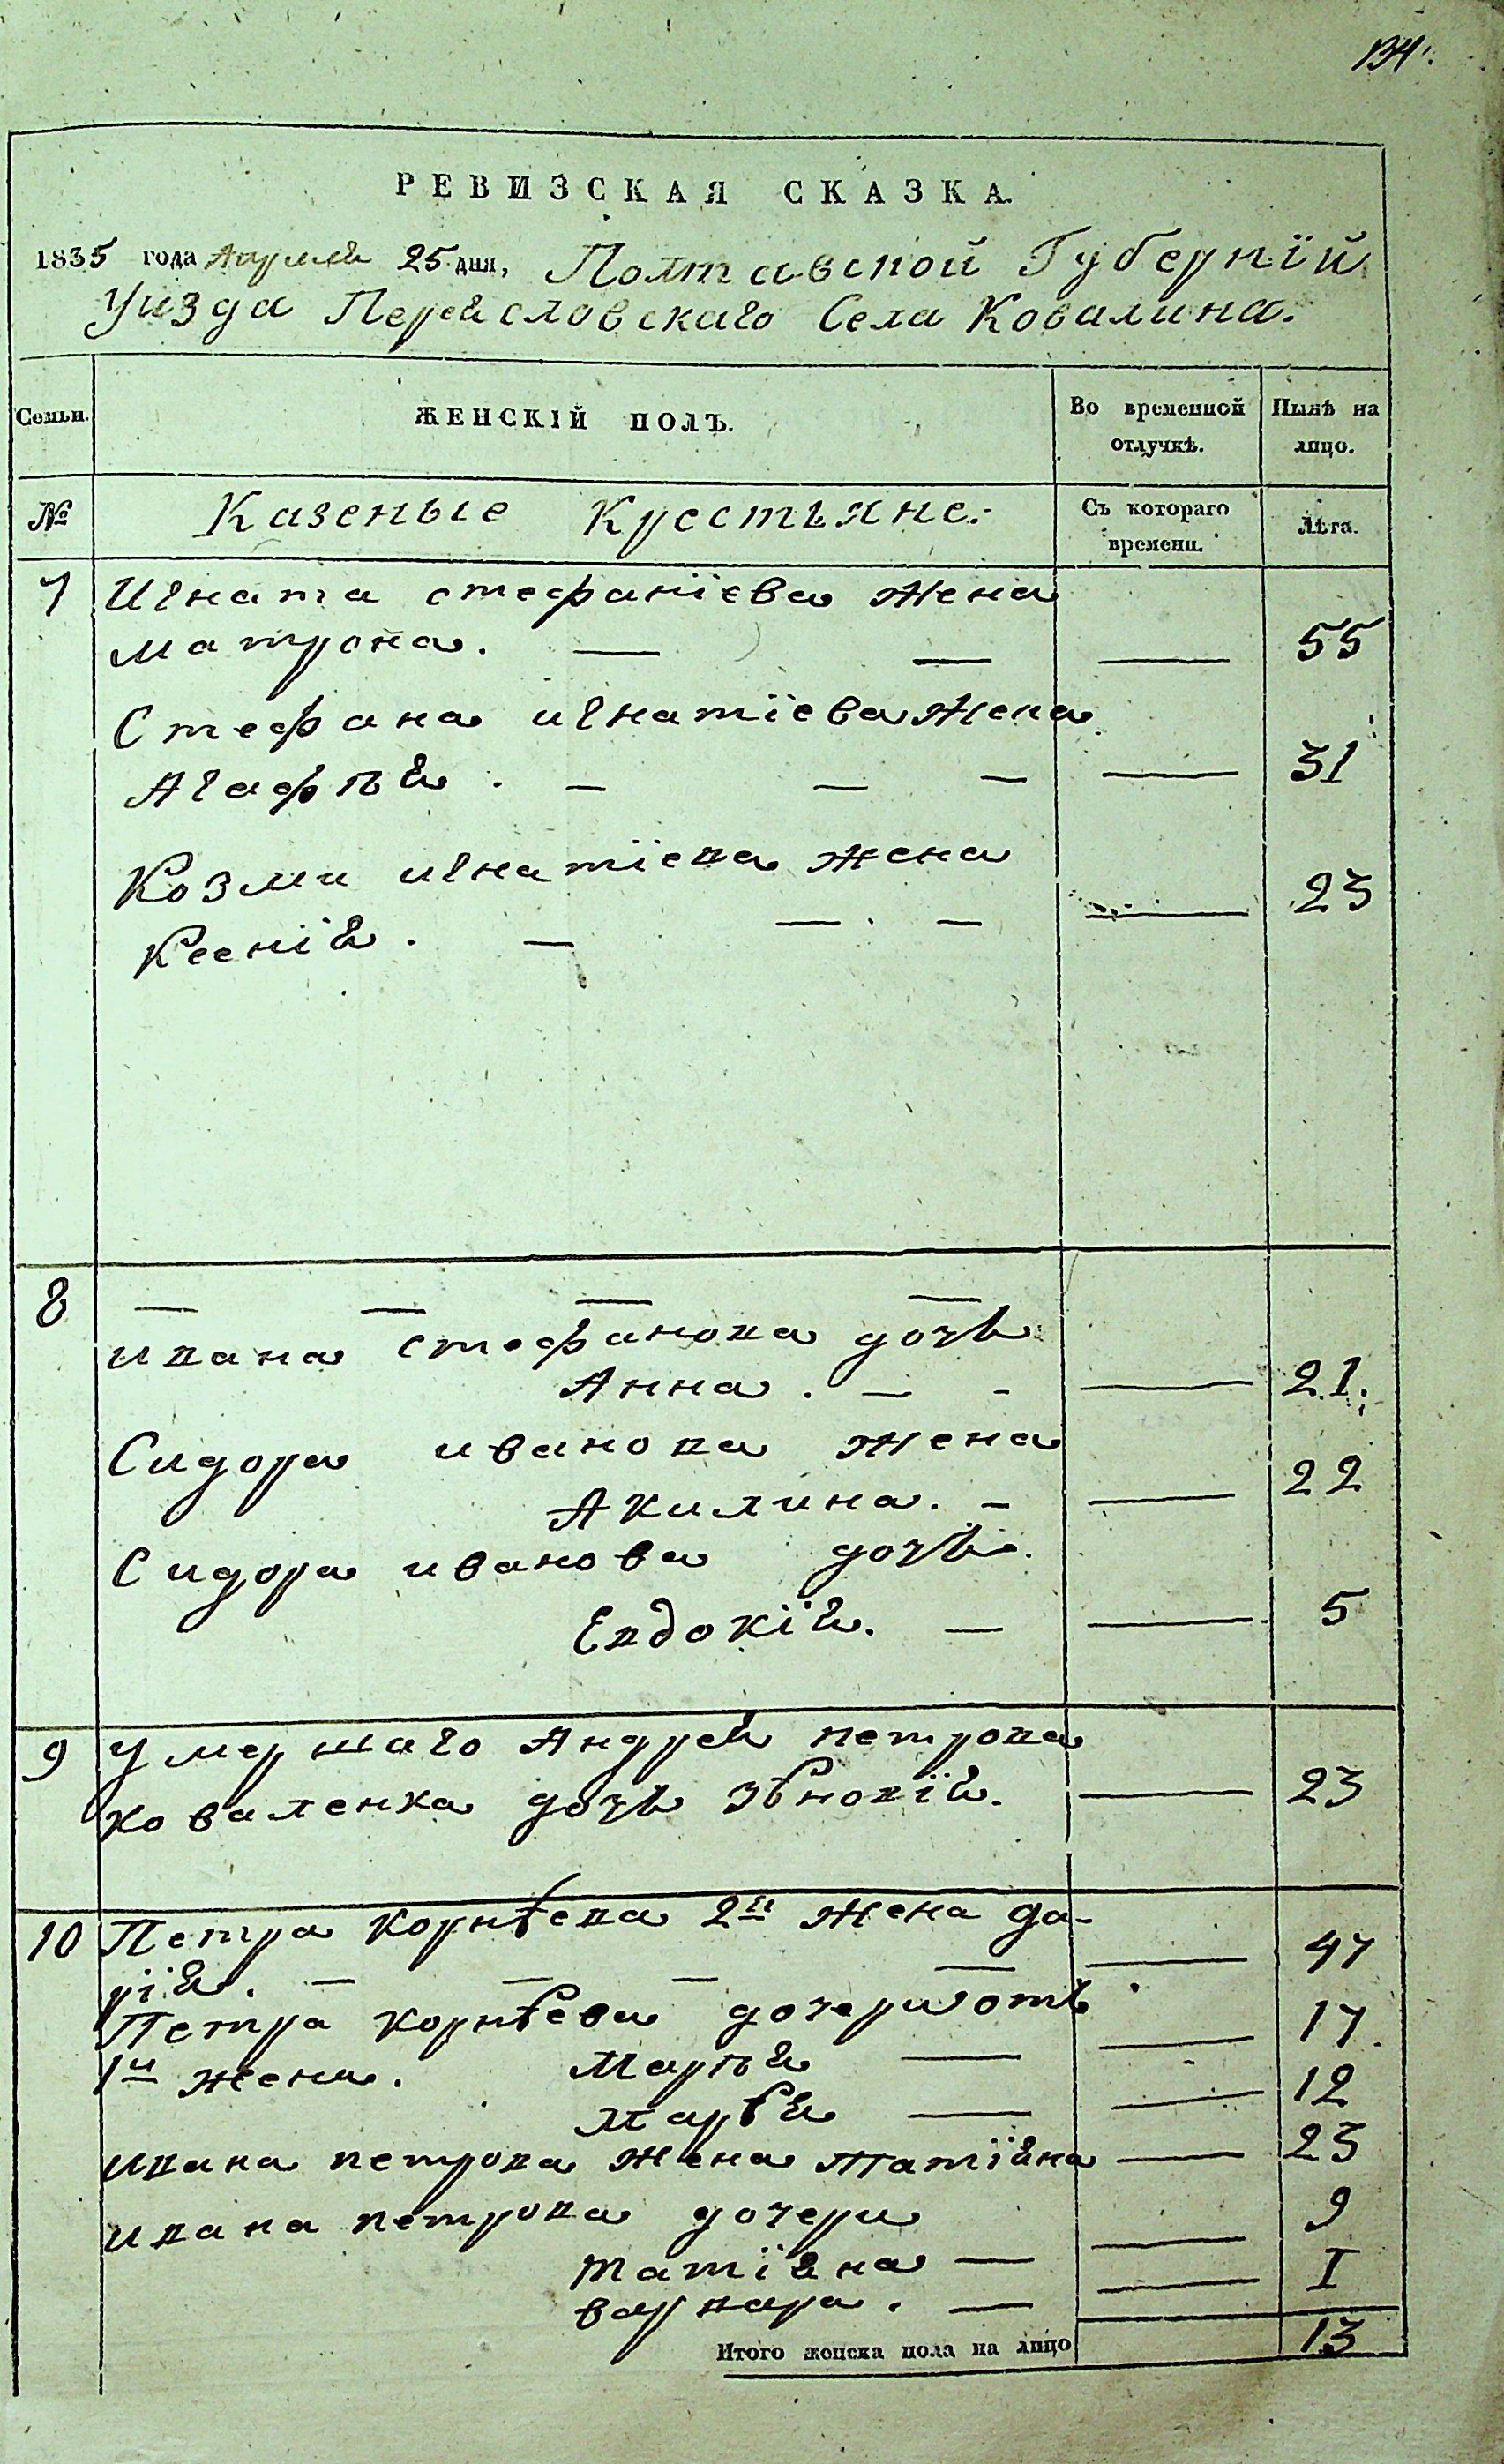 134.
РЕВИЗСКАЯ СКАЗКА.
1835 года Апреля 25 дня, Полтавской Губерніи
Уизда Переясловскаго Села Ковалина.
Семьи. ЖЕНСКІЙ ПОЛЪ. Во временной отлучкѣ. Нынѣ на лицо.
№ Казеные Крестьяне. Съ котораго времени. Лѣта.
7 Игната стефаніева жена
матрона. — — — 55
Стефана игнатіева жена
Агафья. — — — — 31
Козми игнатіева жена
Ксенія. — — — — 23
8 — — — —
ивана стефанова дочь
Анна. — - — 21.
Сидора иванова жена
Акилина. — — 22
Сидора иванова дочь.
Евдокія. — — 5
9 Умершаго Андрея петрова
коваленка дочь — 23
10 Петра корнѣева 2я жена да-
рія. — — — — — 47
Петра корнѣева дочери отъ
1й жени. Марья — — 17
Марѣя — — 12
ивана петрова жена татіяна — 23
ивана петрова дочери
татіяна — — 9
варвара. — — I
Итого женска пола на лицо 13